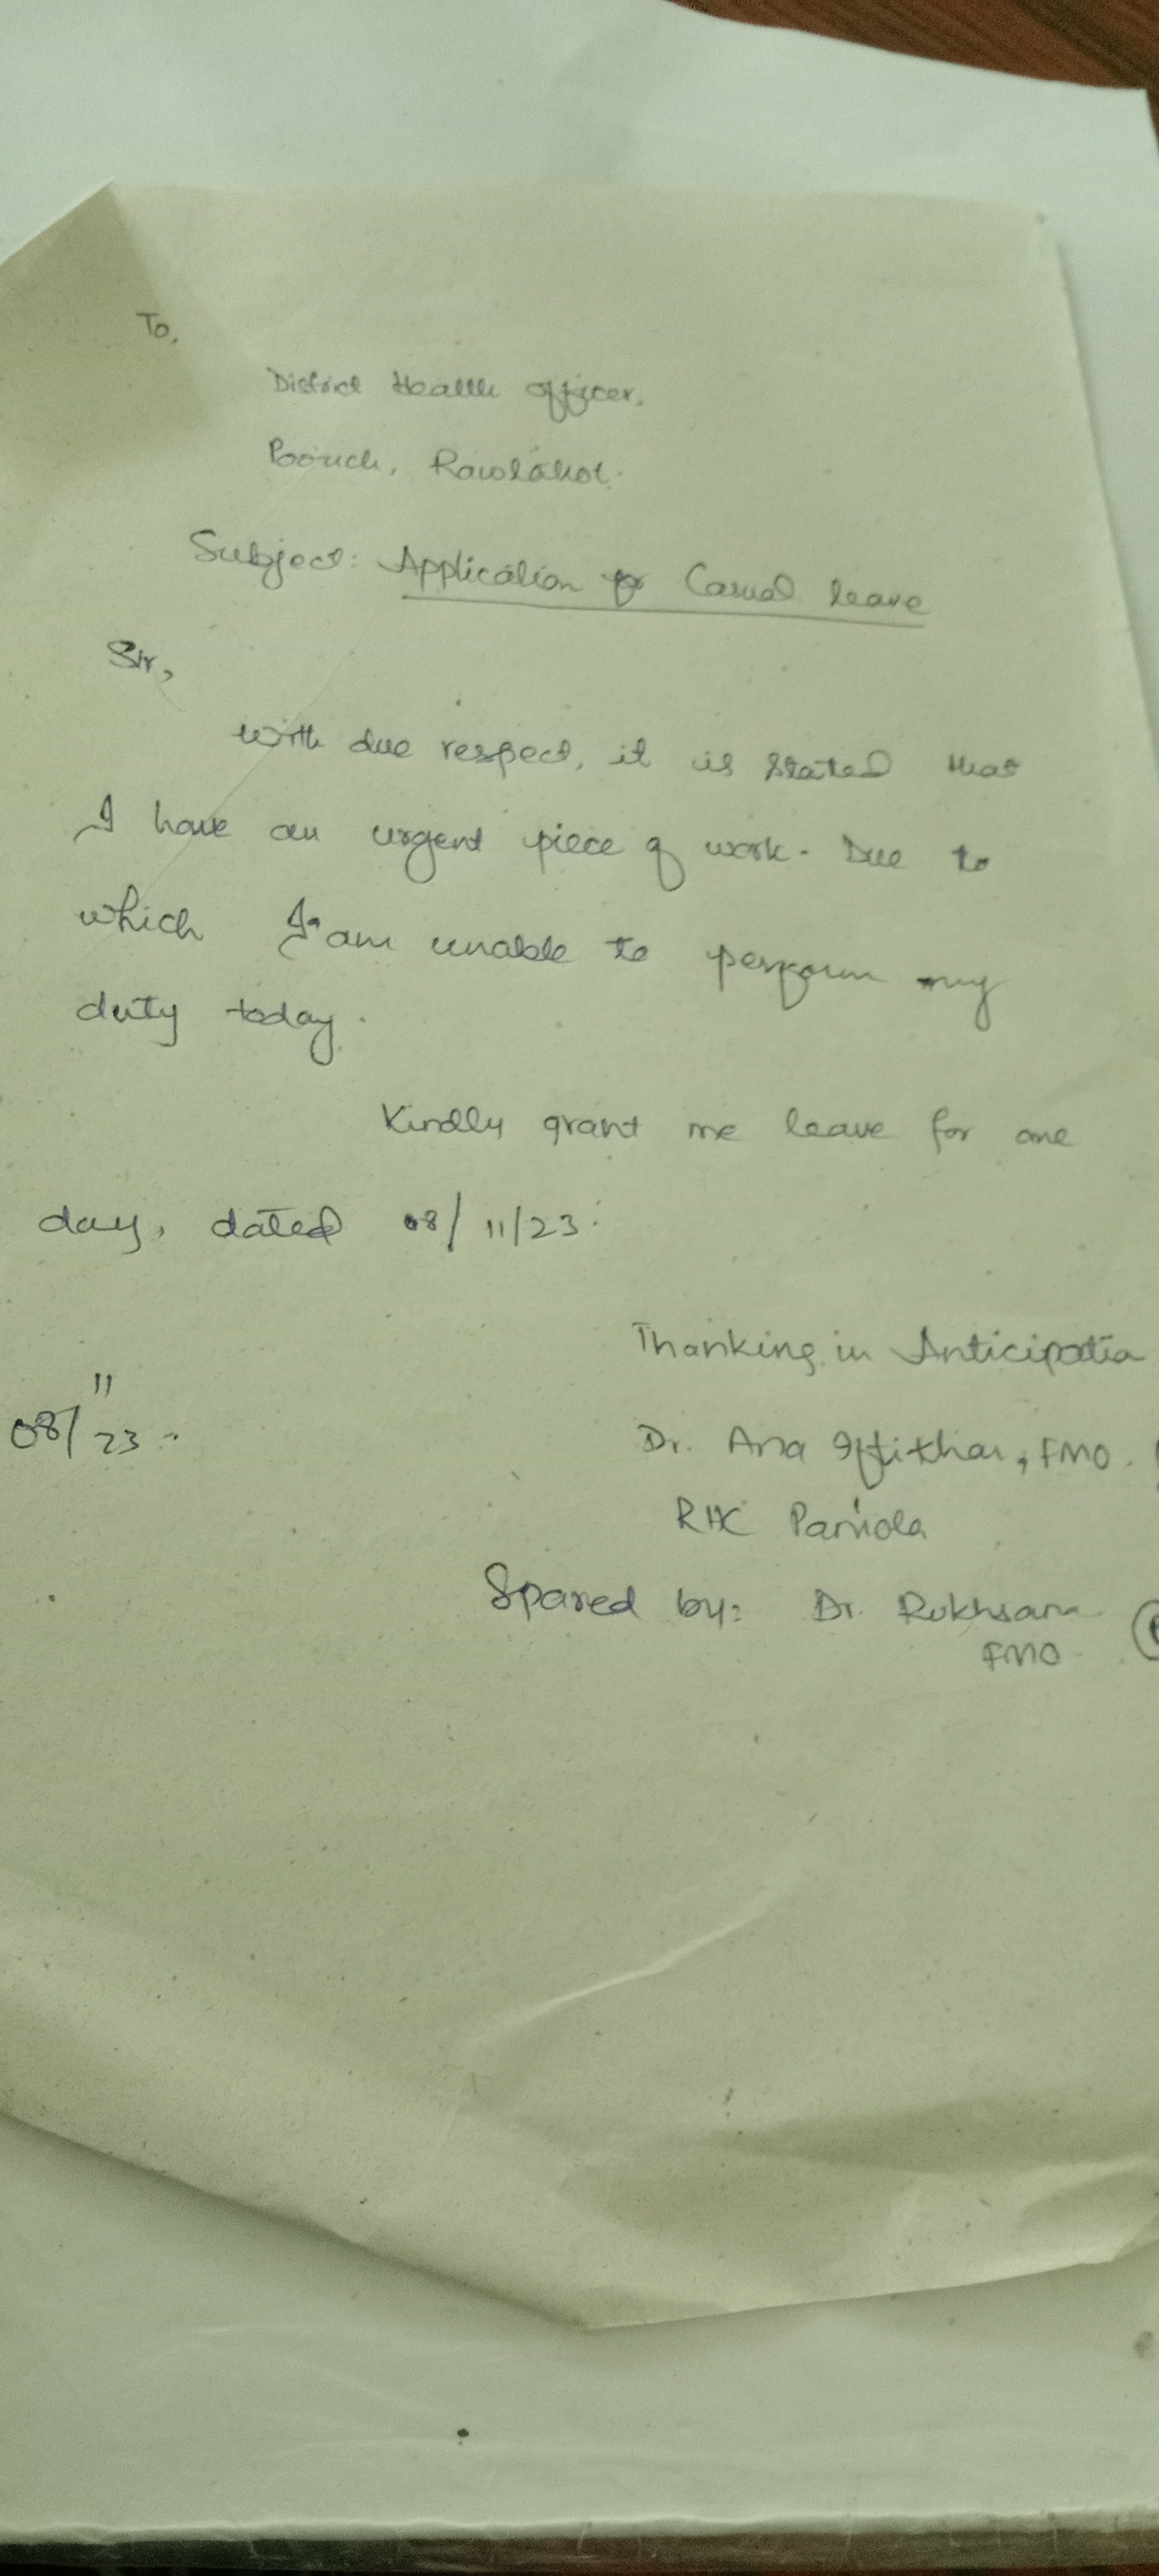 To,
District Health officer,
Poonch, Rawlakot.
Subject: Application for Casual leave
Sir,
with due respect, it is stated that
I have an urgent piece of work. Due to
which I am unable to perform my
duty today.
Kindly grant me leave for one
day, dated 08/11/23.
Thanking in Anticipatio
08/11/23
Dr. Ana Iftikhar, FMO.
RHC Paniola
Spared by: Dr. Rukhsana
FMO